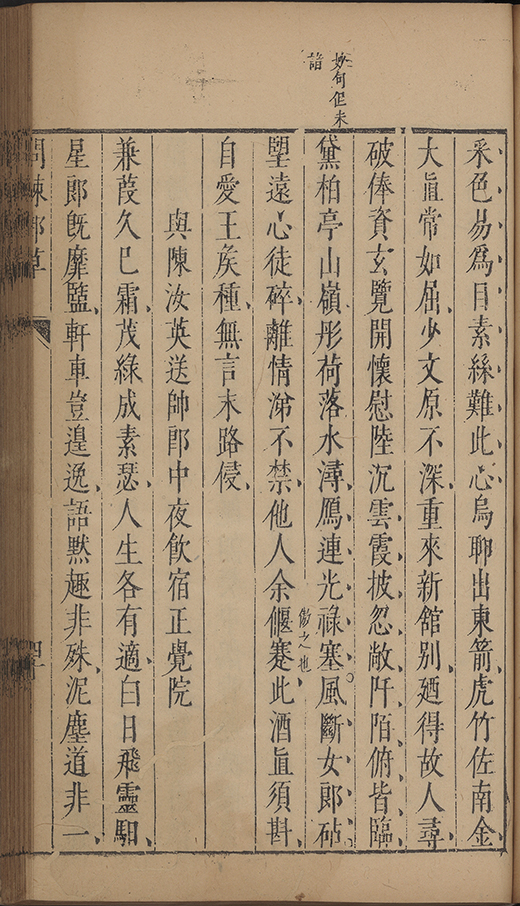 妙句但未
諳
采色易爲目素絲難此心烏聊出東箭虎竹佐南金
大直常如屈少文原不深重來新館別廼得故人尋
破俸資玄覽開懷慰陸沉雲霞披忽敞阡陌俯皆臨
黛柏亭山嶺彤荷落水潯鴈連光祿塞風斷女郎砧
朢遠心徒碎離情涕不禁他人余偃蹇此酒直須斟
傷之也
自愛王矦種無言末路侵
與陳汝英送帥郎中夜飮宿正覺院
兼葭久巳霜茂綠成素瑟人生各有適白日飛靈馹
星郎旣靡盬軒車豈遑逸語黙趣非殊泥塵道非一
問棘郵草
四十